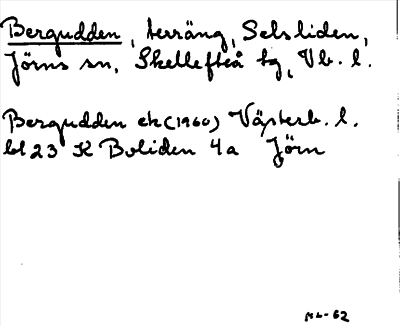 Bergudden, terräng, Selsliden,
Jörns sn, Skellefteå tg, Vb. l.
Bergudden ek (1960) Västerb. l.
bl 23 K Boliden 4a Jörn